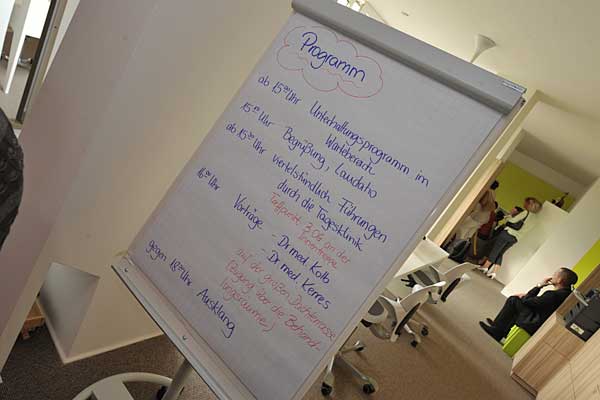 Programm
ab 15⁰⁰ Uhr Unterhaltungsprogramm im
Wartebereich
15¹⁵ Uhr Begrüßung, Laudatio
ab 15³⁰ Uhr viertelstündlich Führungen
durch die Tagesklinik
Treffpunkt 3.OG an der
16⁰⁰ Uhr Vorträge
- Dr med Kolb
- Dr med Kerres
auf der großen Dachterrasse
(Zugang über die Behand-
lungsräume)
gegen 18⁰⁰ Uhr Ausklang